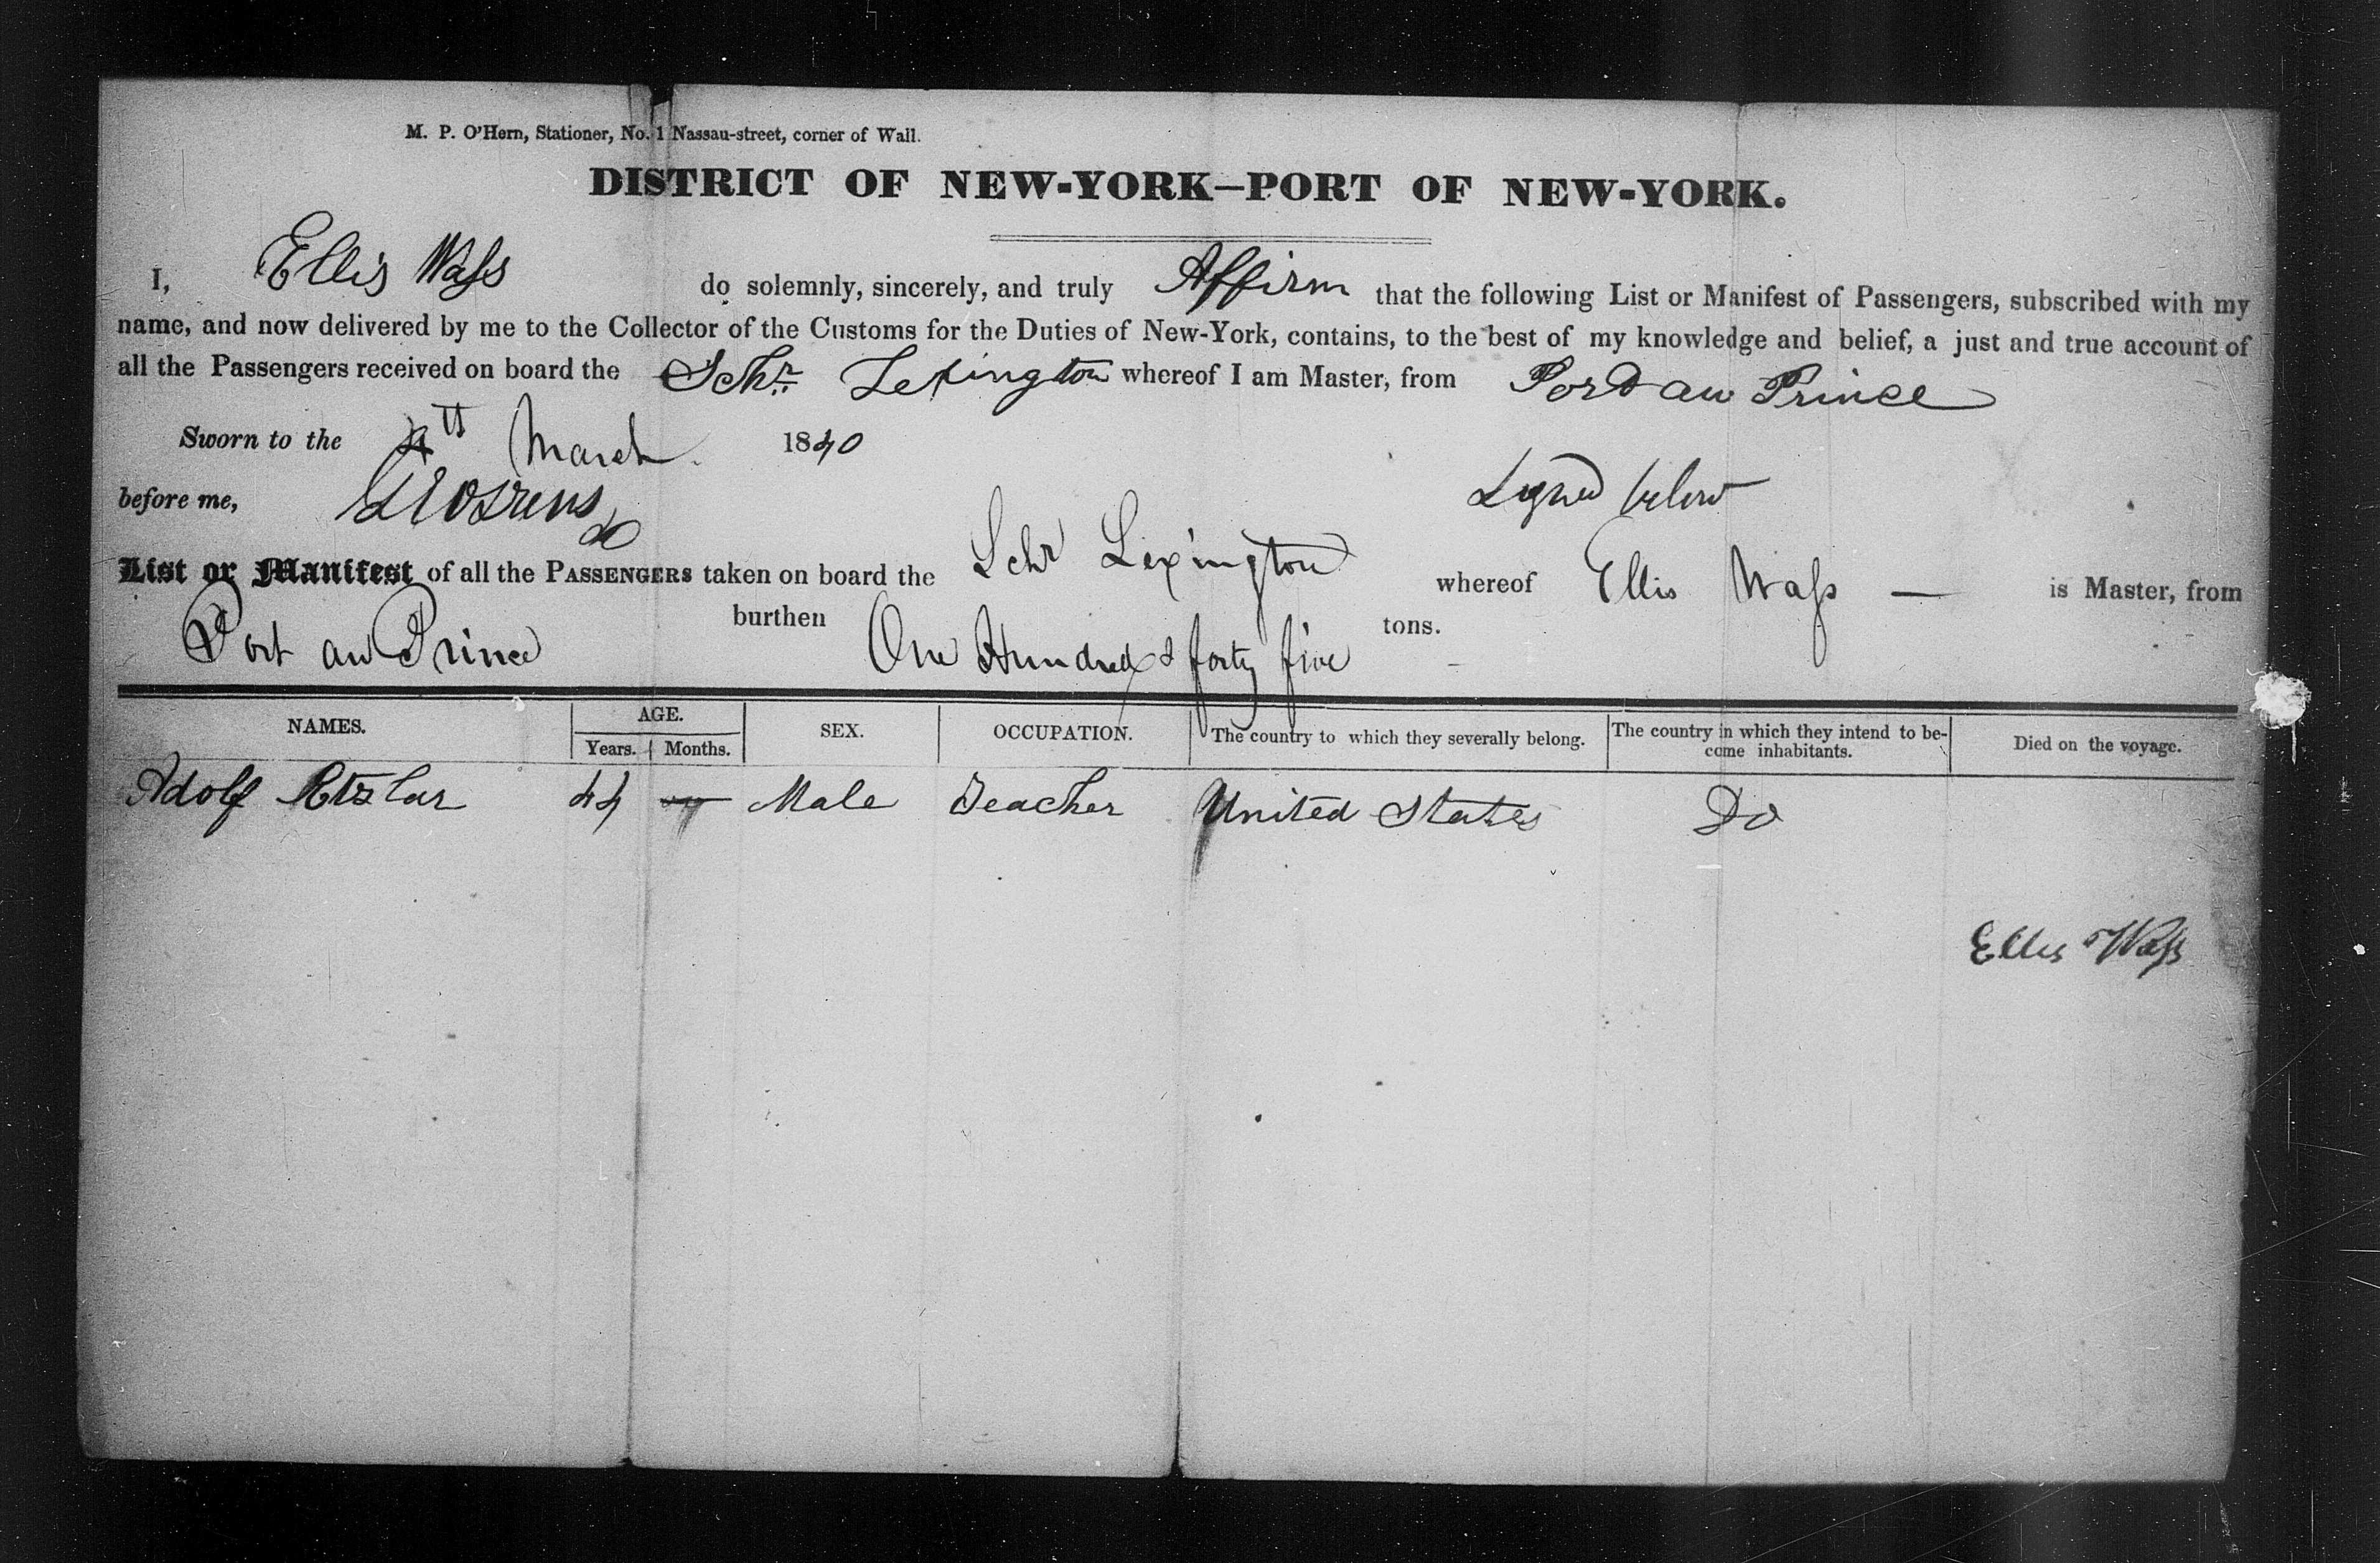 M. P. O'Hern, Stationer, No. 1 Nassau-street, corner of Wall.
DISTRICT OF NEW-YORK—PORT OF NEW-YORK.
I, Ellis Wass do solemnly, sincerely, and truly Affirm that the following List or Manifest of Passengers, subscribed with my
name, and now delivered by me to the Collector of the Customs for the Duties of New-York, contains, to the best of my knowledge and belief, a just and true account of
all the Passengers received on board the Schr Lexington whereof I am Master, from Port au Prince
Sworn to the March 1840
before me, Signed below
List or Manifest of all the PASSENGERS taken on board the Schr Lexington whereof Ellis Wass — is Master, from
Port au Prince burthen One Hundred & forty five tons.
NAMES. AGE. Years. Months. SEX. OCCUPATION. The country to which they severally belong. The country in which they intend to become inhabitants. Died on the voyage.
Adolf 44 Male Teacher United States Do
Ellis Wass